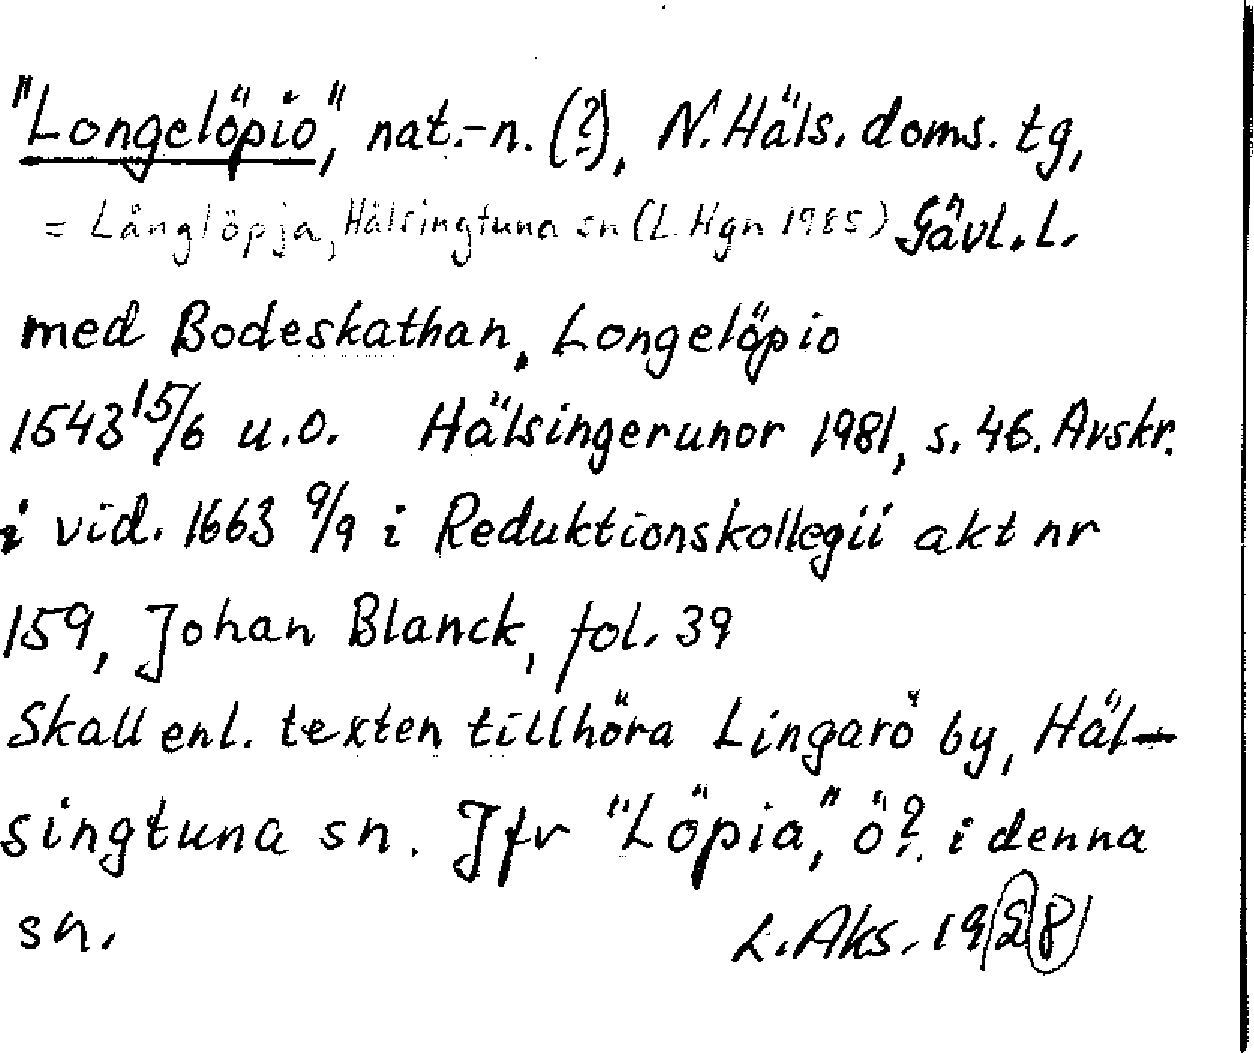 "Longelöpio", nat.-n. (?), N. Häls. doms. tg,
= Långlöpja, Hälsingtuna sn (L Hgn 1985) Gävl. L.
med Bodeskathan, Longelöpio
1543 15/6 u.o. Hälsingerunor 1981, s. 46. Avskr.
i vid. 1663 9/9 i Reduktionskollegii akt nr
159, Johan Blanck, fol. 39
Skall enl. texten tillhöra Lingarö by, Häl-
singtuna sn. Jfr "Löpia", ö? i denna
sn.
L. Aks. 1982